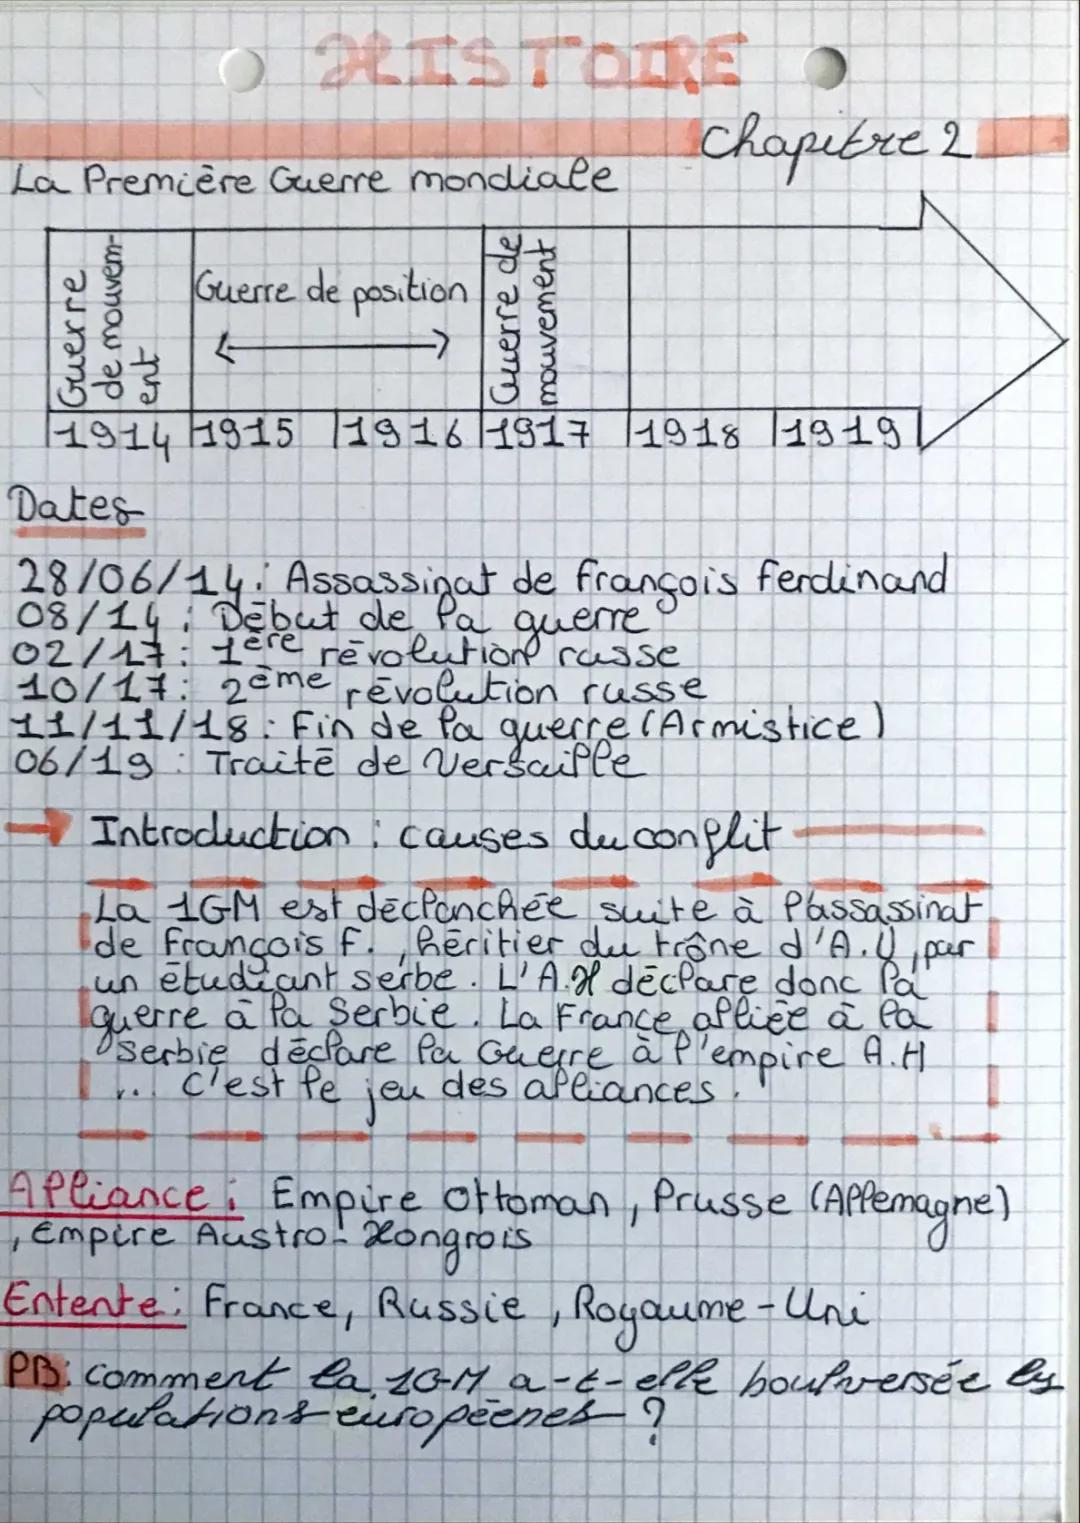 HISTOIRE
Chapitre 2
La Première Guerre mondiale
Guerre
de mouvem-
ent
Guerre de position
Guerre de
mouvement
1914 1915 1916 1917 1918 1919
Dates
28/06/14 : Assassinat de François Ferdinand
08/14 : Début de la guerre
02/17 : 1ère révolution russe
10/17 : 2ème révolution russe
11/11/18 : Fin de la guerre (Armistice)
06/19 : Traité de Versaille
→ Introduction : causes du conflit
La 1GM est déclanchée suite à l'assassinat
de François F. , héritier du trône d'A.U, par
un étudiant serbe. L'A.H déclare donc la
guerre à la Serbie. La France alliée à la
serbie déclare la Guerre à l'empire A.H
... C'est le jeu des alliances.
Alliance : Empire Ottoman, Prusse (Allemagne)
, Empire Austro-Hongrois
Entente : France, Russie, Royaume-Uni
PB : Comment la 1GM a-t-elle boulversée les
populations européenes ?